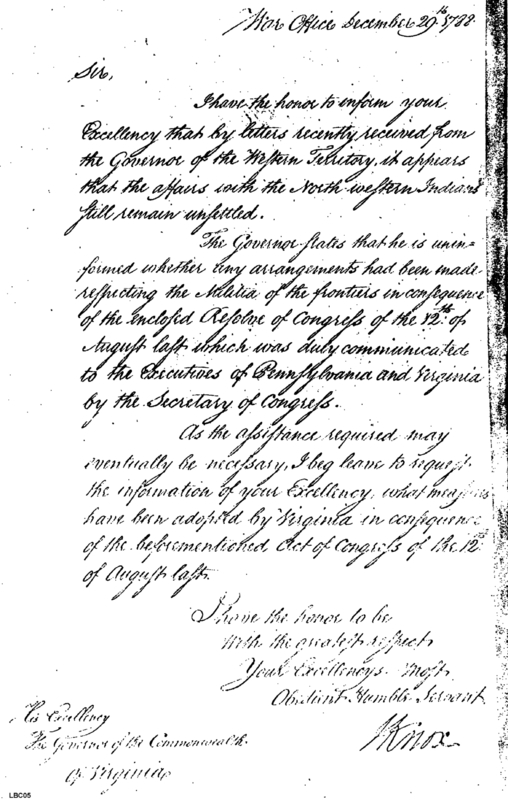 War Office December 29th. 1788
Sir,
I have the honor to inform your
Excellency that by letters recently received from
the Governor of the Western Territory, it appears
that the affairs with the North western Indians
still remain unsettled.
The Governor states that he is unin=
formed whether any arrangements had been made
respecting the Militia of the frontiers in consequence
of the enclosed Resolve of Congress of the 12th. of
August last which was duly communicated
to the Executives of Pennsylvania and Virginia
by the Secretary of Congress.
As the assistance required may
eventually be necessary, I beg leave to request
the information of your Excellency, what measures
have been adopted by Virginia in consequence
of the beforementioned Act of Congress of the 12th
of August last.
I have the honor to be
With the greatest respect
Your Excellencys most
Obedient Humble Servant
HKnox
His Excellency
The Governor of the Commonwealth
of Virginia
LBC05